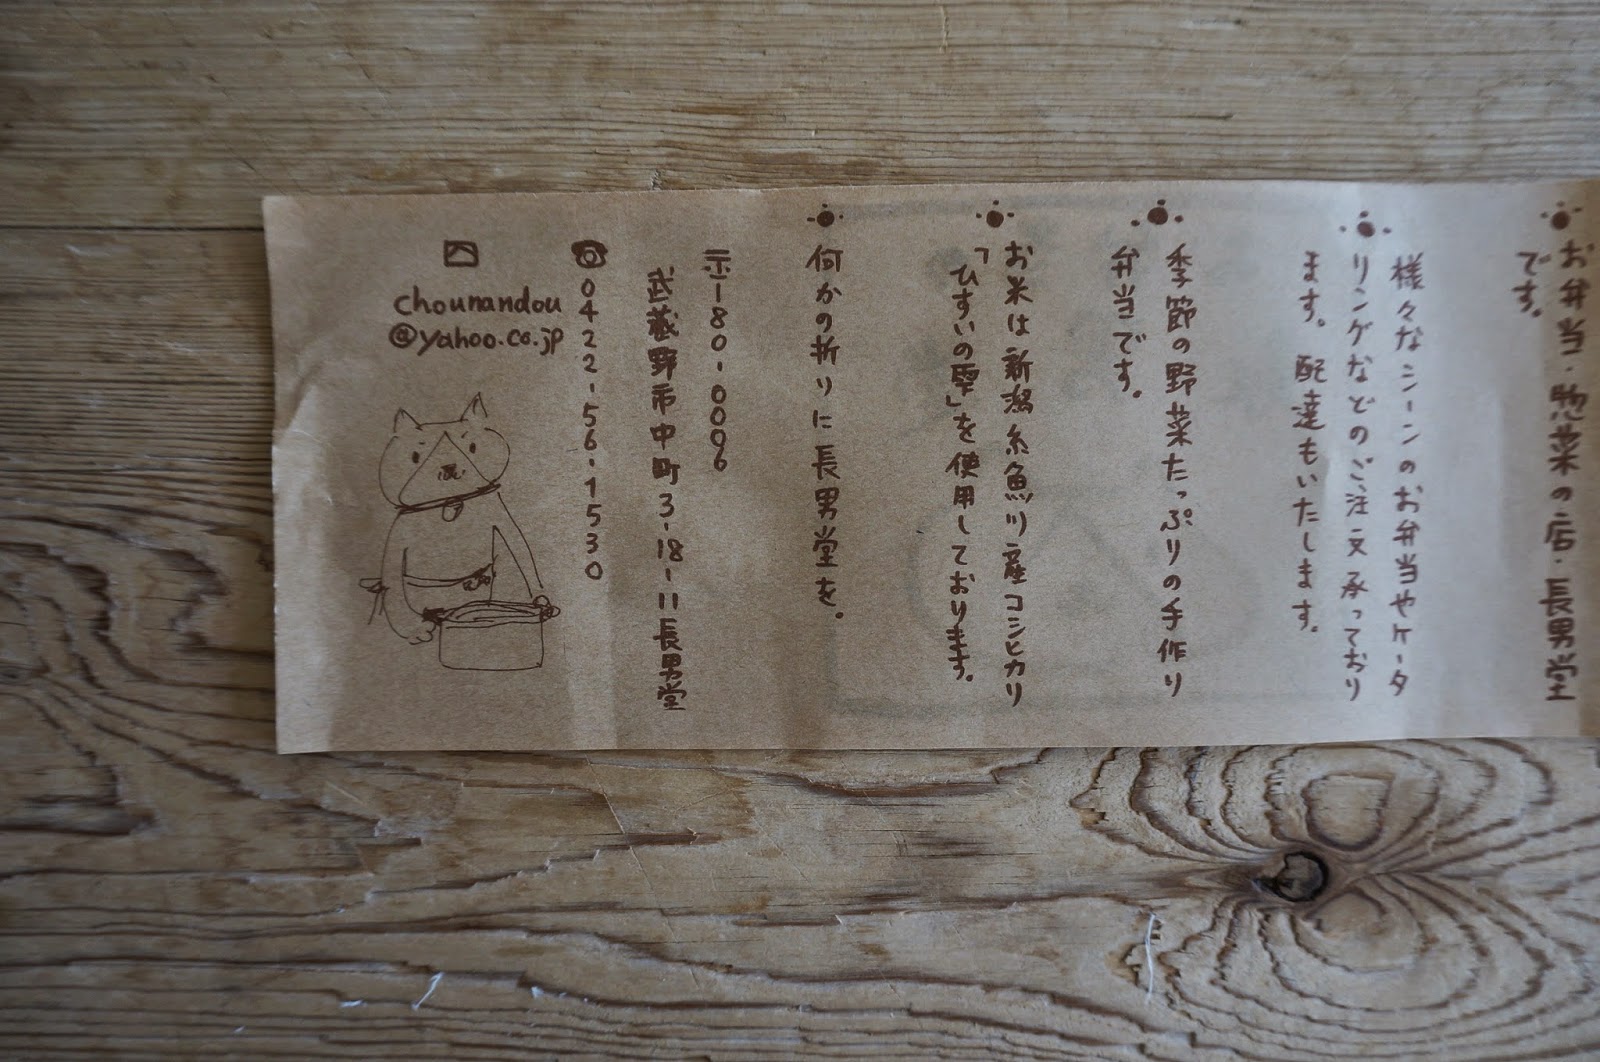 お弁当・惣菜の店・長男堂
です。
様々なシーンのお弁当やケータ
リングなどのご注文承っており
ます。配達もいたします。
季節の野菜たっぷりの手作り
弁当です。
お米は新潟糸魚川産コシヒカリ
「ひすいの雫」を使用しております。
何かの折りに長男堂を。
〒180-0006
武蔵野市中町3-18-11長男堂
☎0422-56-1530
chounandou
@yahoo.co.jp